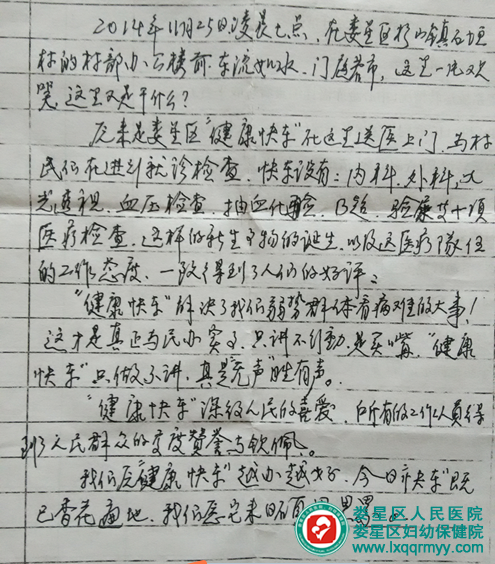 2014年11月25日凌晨七点，在娄星区杉山镇石垣
村的村部办公楼前，车流如水、门庭若市，这里一片欢
笑，这里又是干什么？
原来是娄星区"健康快车"在这里送医上门，为村
民们在进行就诊检查，快车设有：内科、外科，
光透视、血压检查、抽血化验、B超、验尿等十项
医疗检查，这样的新生事物的诞生，以及这医疗队伍
的工作态度，一致得到了人们的好评。
"健康快车"解决了我们弱势群体看病难的大事！
这才是真正为民办实事，只讲不行动是买嘴，"健康
快车"只做不讲，真是无声胜有声。
"健康快车"深级人民的喜爱，所有的工作人员得
到了人民群众的高度赞誉与钦佩。
我们反健康快车"越办越好，今日快车"既
已香花遍地，我们愿它来日
娄星区人民医院
娄星区妇幼保健院
www.lxqqrmyy.com